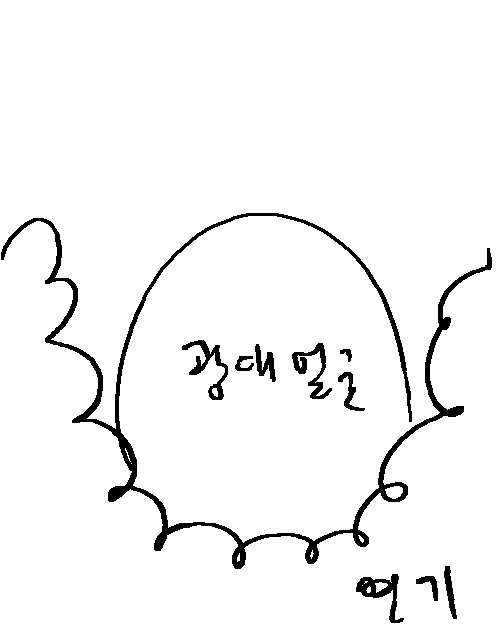 광대얼굴
여기